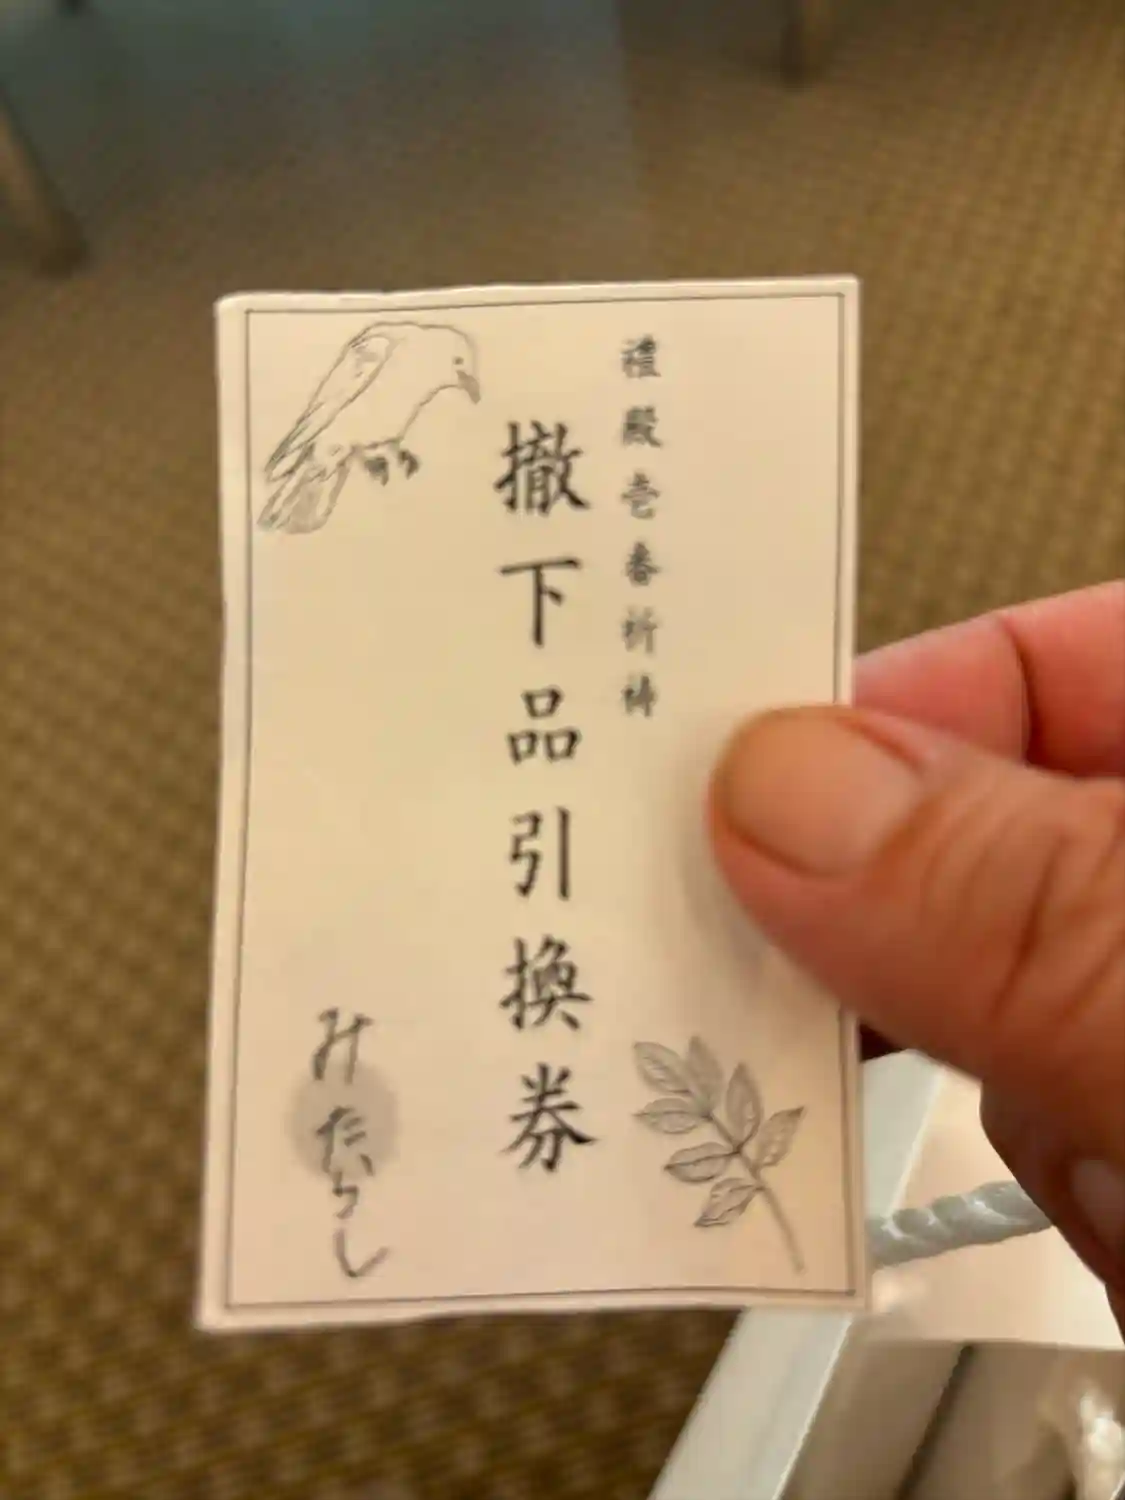 禮殿壱番祈祷
撤下品引換券
みたらし